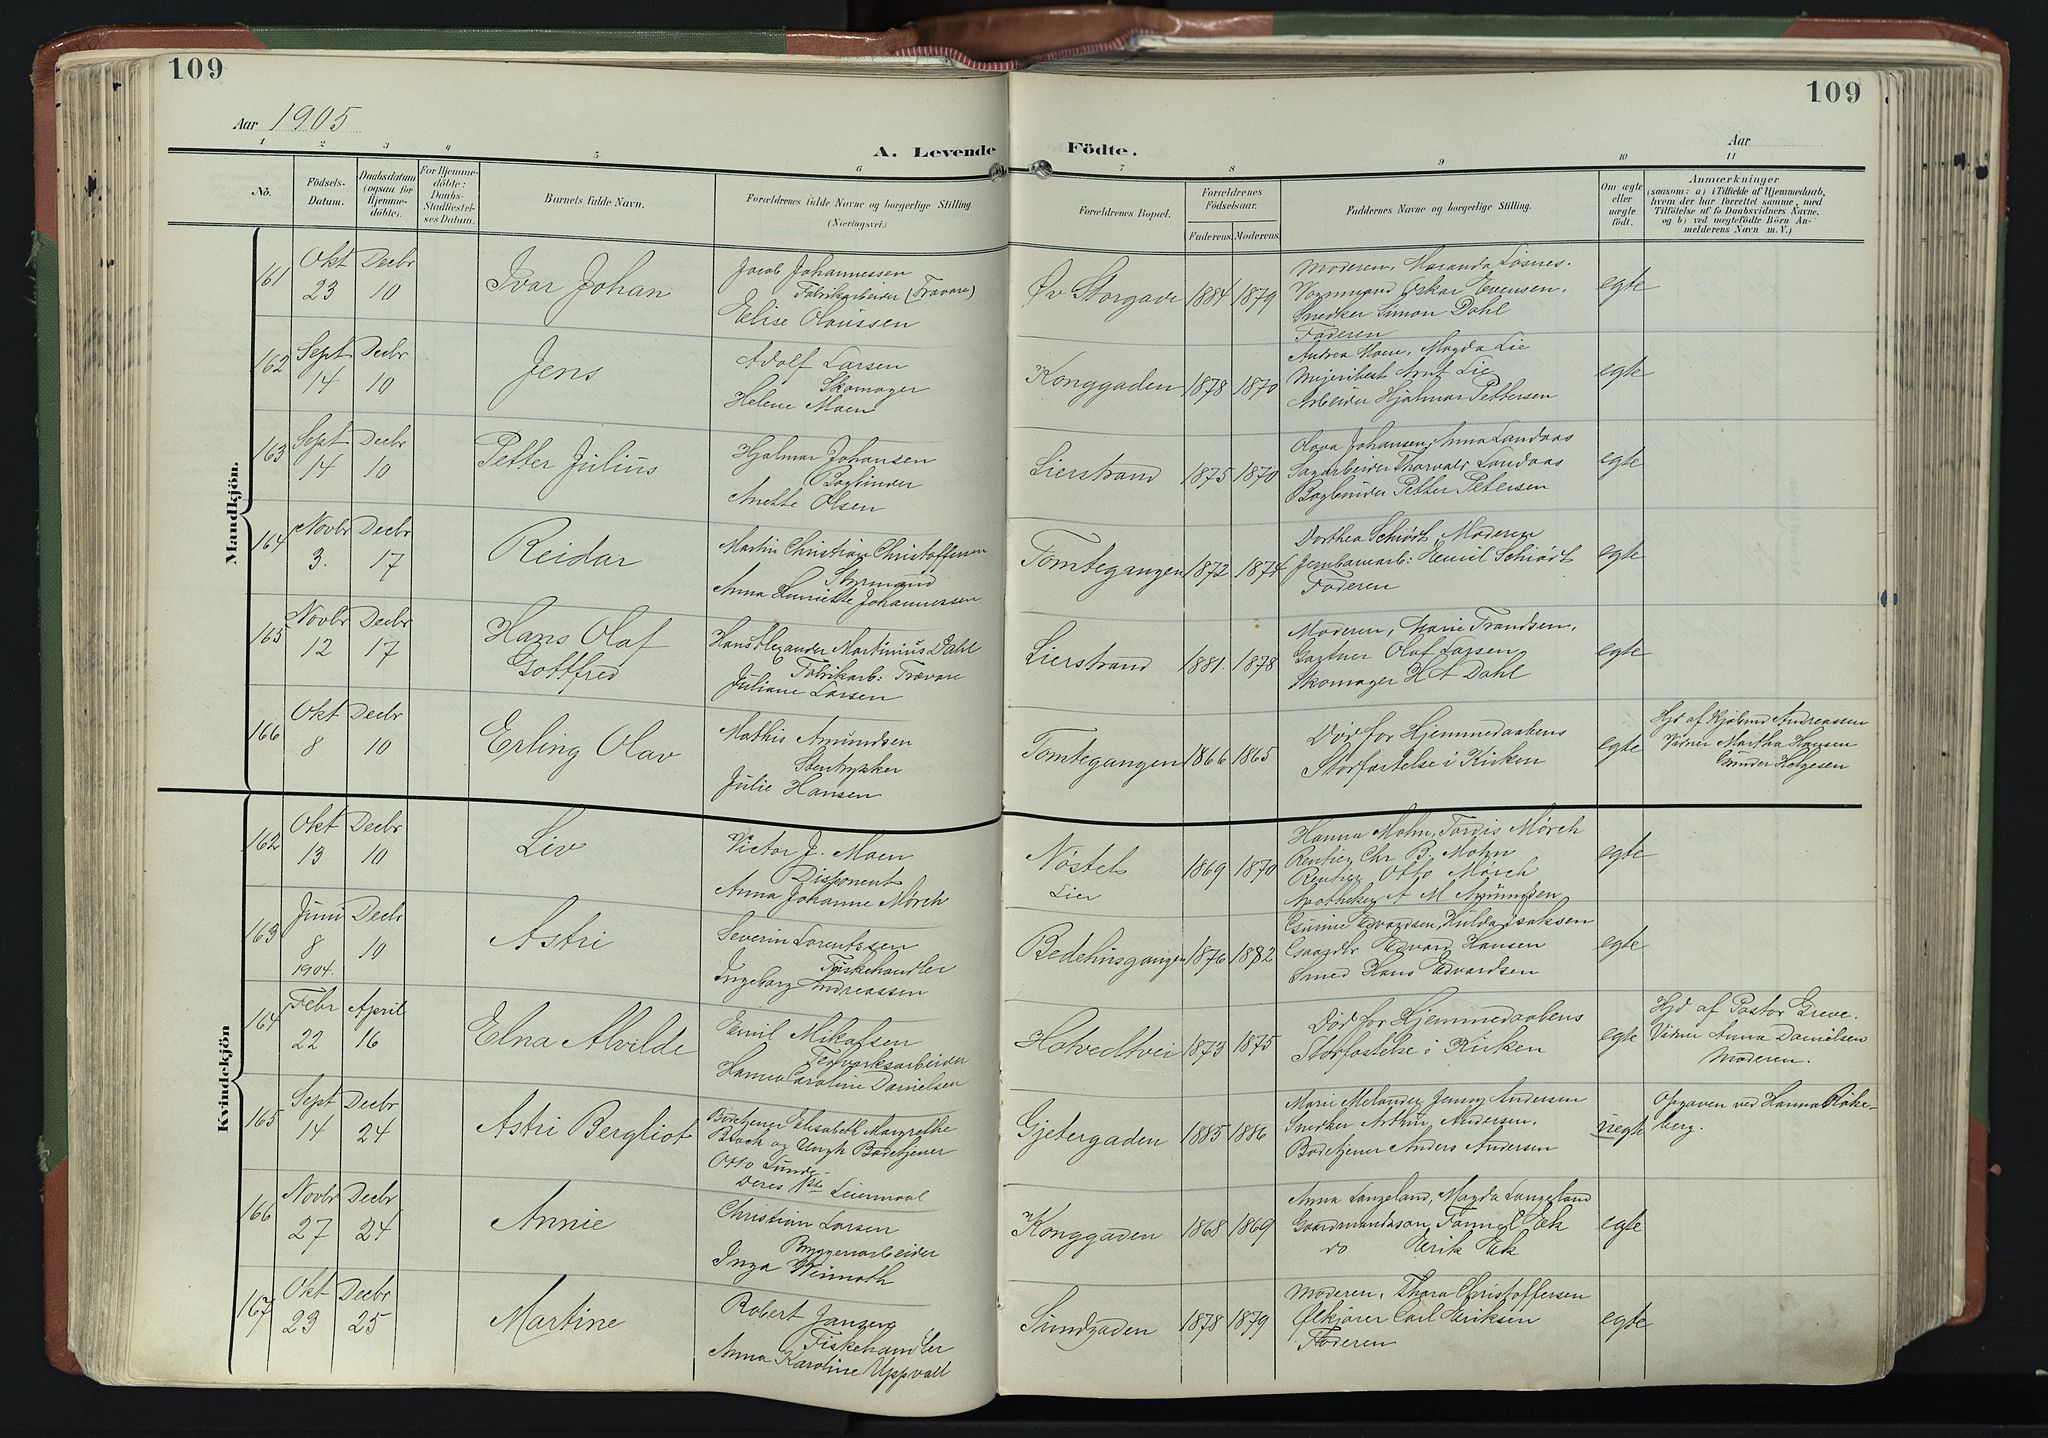 109
109
Aar 1905
Aar
A. Levende Födte.
1 2 3 4 5 6 7 8 9 10 11
No.
Födsels-Datum.
Daabsdatum (ogsaa for Hjemme-döbte).
For Hjemme-döbte: Daabs-Stadfæstel-ses Datum.
Barnets fulde Navn.
Forældrenes fulde Navne og borgerlige Stilling.
(Næringsvei.)
Forældrenes Bopæl.
Forældrenes Födselsaar.
Faderens. Moderens.
Faddernes Navne og borgerlige Stilling.
Om ægte eller uægte födt.
Anmærkninger
(saasom: a) i Tilfælde af Hjemmedaab, hvem der har forrettet samme, med Tilföielse af to Daabsvidners Navne, og b) ved uægtefödte Börn An-melderens Navn m. V.)
Mandkjön.
161 Okt 23 Decbr 10
Ivar Johan
Jacob Johannessen
Fabrikarbeider (Trævare)
Elise Olaussen
Øv. Storgade 1884 1879
Moderen, Maranda Losnes.
Vognmand Oskar Evensen.
Snedker Simon Dahl
Faderen
egte
162 Sept 14 Decbr 10
Jens
Adolf Larsen
Skomager
Helene Moen
Konggaden 1878 1870
Andrea Moen, Magda Lie
Mejeribest Arnt Lie
Arbeider Hjalmar Pettersen
egte
163 Sept 14 Decbr 10
Petter Julius
Hjalmar Johansen
Bogbinder
Anette Olsen
Lierstrand 1875 1870
Olava Johansen, Anna Landaas
Sagarbeider Thorvald Landaas
Bogbinder Petter Petersen
egte
164 Novbr 3. Decbr 17
Reidar
Martin Christian Christoffersen
Styrmand
Anna Henriette Johannessen
Tomtegangen 1872 1874
Dorthea Schiødt, Moderen
Jernbanearb: Emil Schiødt
Faderen
egte
165 Novbr 12 Decbr 17
Hans Olaf Gottfred
Hans Alexander Martinius Dahl
Fabrikarb: Trævare
Juliane Larsen
Lierstrand 1881 1878
Moderen, Marie Frandsen,
Gartner Olaf Larsen
Skomager H A Dahl
egte
166 Okt 8 Decbr 10
Erling Olav
Mathis Amundsen
Stentrykker
Julie Hansen
Tomtegangen 1866 1865
Død før Hjemmedaabens
Storfæstelse i Kirken
egte
Hjd af Andreassen
Vidner Martha Hansen
Gunder Helgesen
Kvindekjön
162 Okt 13 Decbr 10
Liv
Victor J. Moen
Disponent
Anna Johanne Mørch
Nøste
Lier
1869 1870
Hanna Mohn, Tordis Mørch
Rentier Chr B. Mohn
Rentier Otto Mørch
Apotheker A M Amundsen
egte
163 Juni 8 1904. Decbr 10
Astri
Severin Lorentssen
Fiskehandler
Ingeborg Andreassen
Bedehusgangen 1876 1882
Gunine Edvardsen, Hulda Isaksen
Gaardbr Edvard Hansen
Smed Hans Edvardsen
egte
164 Febr 22 April 16
Elna Alvilde
Emil Mikalsen
Teglværksarbeider
Hanna Caroline Danielsen
Hotvedtvei 1873 1875
Død før Hjemmedaabens
Storfæstelse i Kirken
egte
Hjd af Pastor Greve.
Vidne Anna Danielsen
Moderen.
165 Sept 14 Decbr 24
Astri Bergliot
Bodetjener Elisabeth Margrethe
Brock og Ungk Bodetjener
Otto Lunde
Deres 1ste Leiermaal
Gjetergaden 1885 1886
Marie Melander, Jenny Andersen
Snedker Arthur Andersen.
Bodetjener Anders Andersen
uegte
Opgaven ved Hanna Røke-
berg.
166 Novbr 27 Decbr 24
Annie
Christian Larsen
Bryggeriarbeider
Inga Weinoth
Konggaden 1868 1869
Anna Langeland, Magda Langeland
Gaardmandssøn Tommel Eek
do Erik Eek
egte
167 Okt 23 Decbr 25
Martine
Robert Jansen
Fiskehandler
Anna Karoline Uppvall
Sundgaden 1878 1879
Moderen, Thora Christoffersen
Ølkjører Carl Eriksen
Faderen
egte